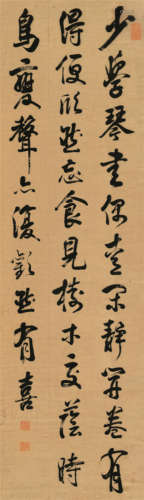 少學琴書偶愛閑靜開卷有
得便欣然忘食見樹木交蔭時
鳥變聲亦復歡然有喜